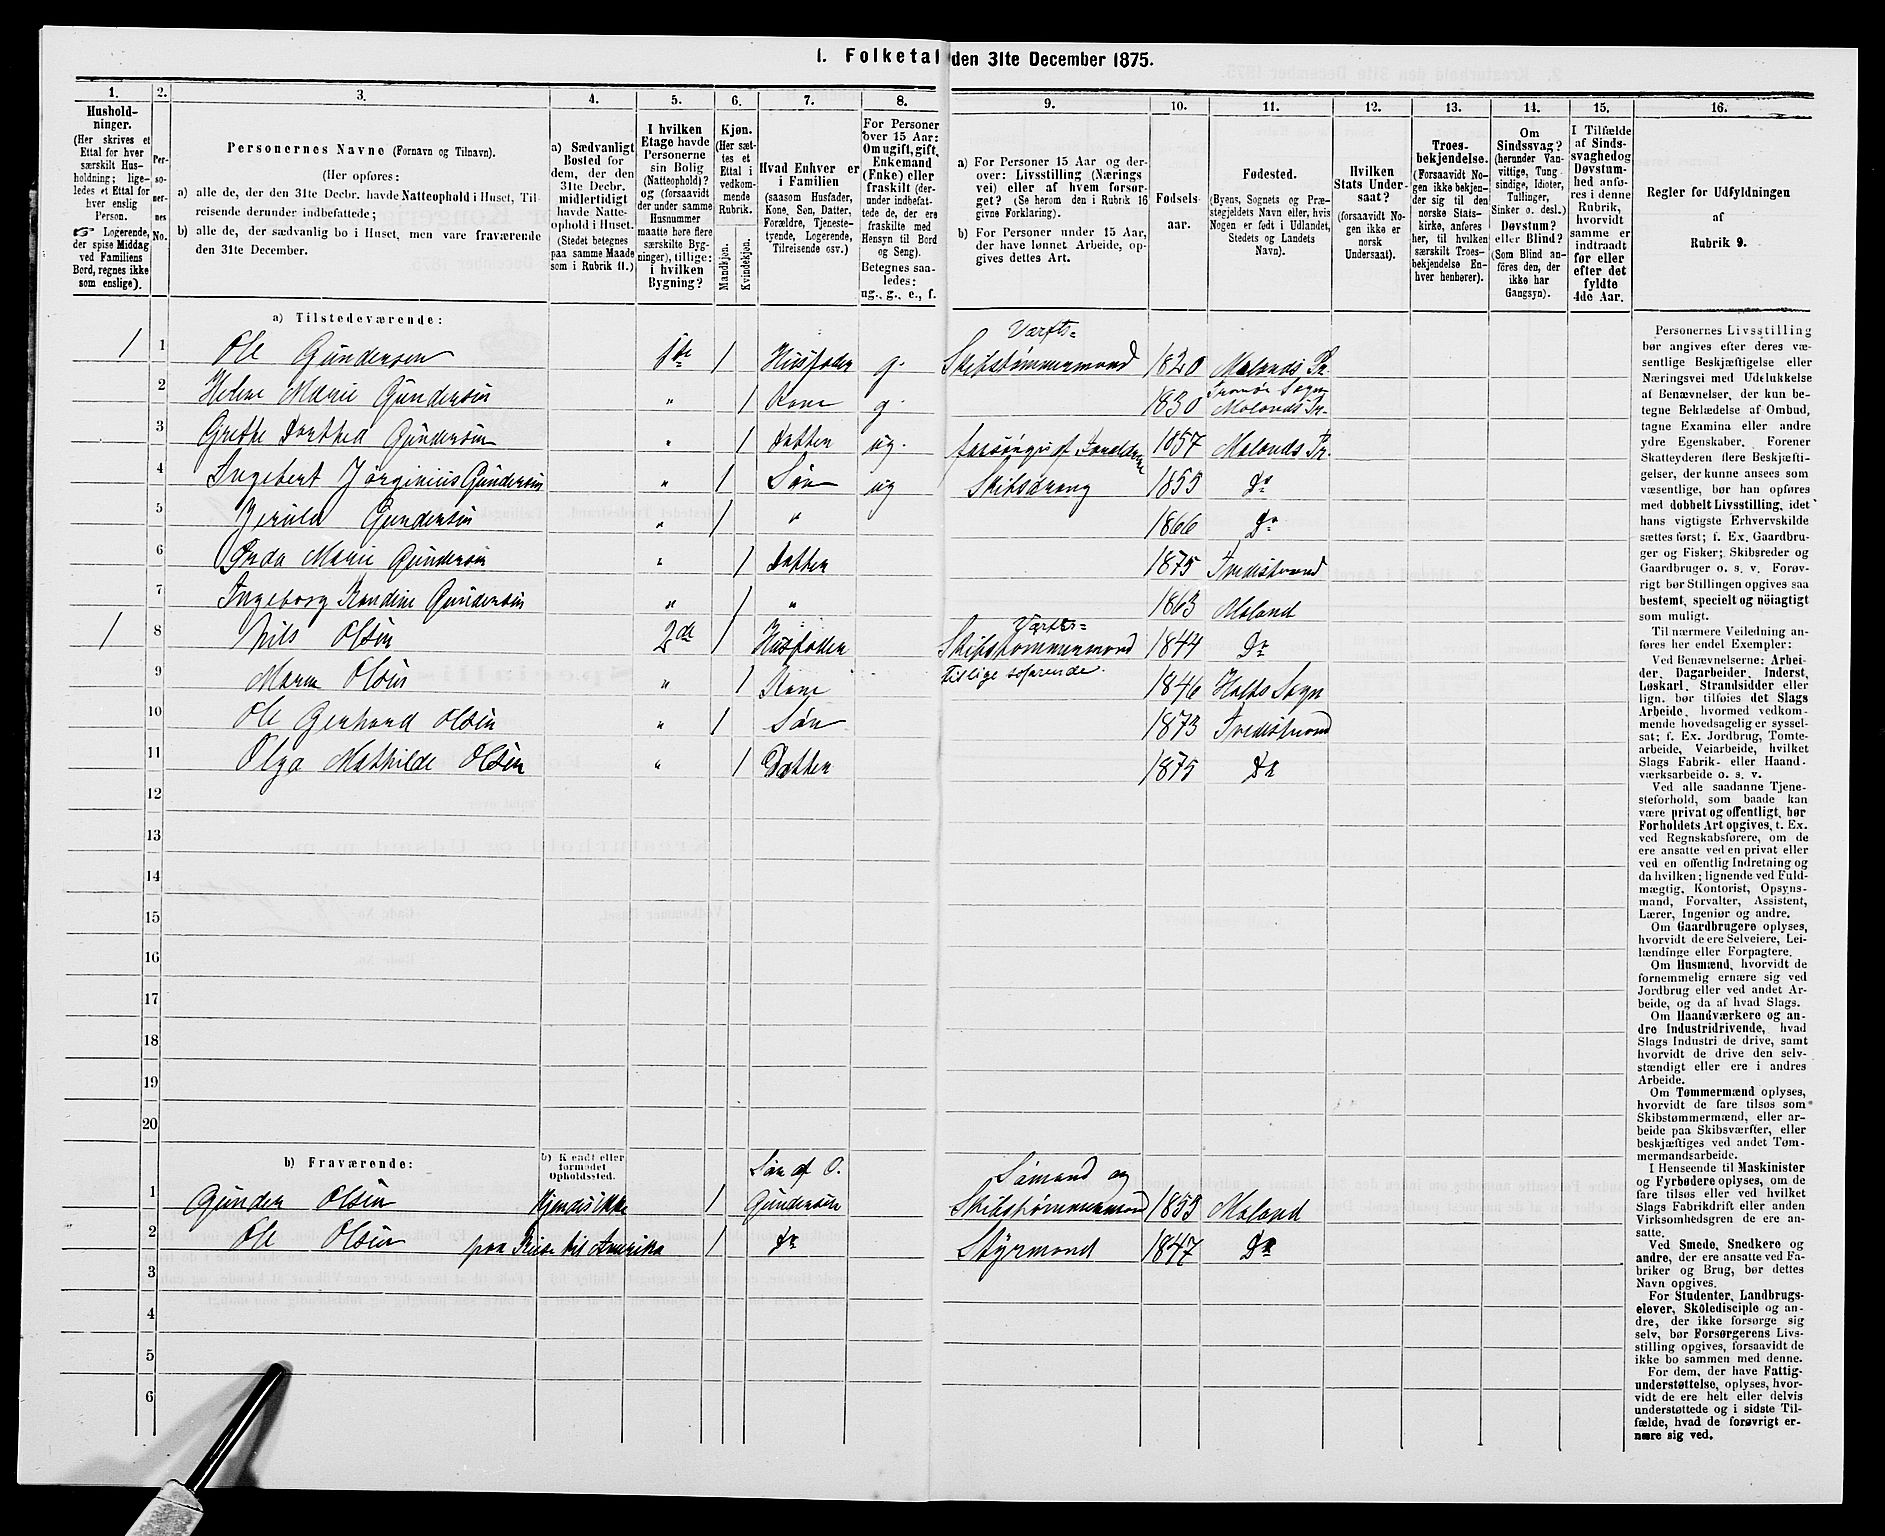 1. Folketal den 31te December 1875.
1. 2. 3. 4. 5. 6. 7. 8. 9. 10. 11. 12. 13. 14. 15. 16.
Hushold-
ninger.
(Her skrives et
Ettal for hver
særskilt Hus-
holdning; lige-
ledes et Ettal for
hver enslig
Person.
☞ Logerende,
der spise Middag
ved Familiens
Bord, regnes ikke
som enslige).
Per-
so-
ner-
nes
No.
Personernes Navne (Fornavn og Tilnavn).
(Her opføres:
a) alle de, der den 31te Decbr. havde Natteophold i Huset, Til-
reisende derunder indbefattede;
b) alle de, der sædvanlig bo i Huset, men vare fraværende
den 31te December.
a) Sædvanligt
Bosted for
dem, der den
31te Decbr.
midlertidigt
havde Natte-
ophold i Huset.
(Stedet betegnes
paa samme Maade
som i Rubrik 11.)
I hvilken
Etage havde
Personerne
sin Bolig
(Natteophold)?
og (forsaavidt
der under samme
Husnummer
maatte høre flere
særskilte Byg-
ninger), tillige:
i hvilken
Bygning?
Kjøn.
(Her sæt-
tes et
Ettal i
vedkom-
mende
Rubrik.
Mandkjøn.
Kvindekjøn.
Hvad Enhver er
i Familien
(saasom Husfader,
Kone, Søn, Datter,
Forældre, Tjeneste-
tyende, Logerende,
Tilreisende osv.)
For Personer
over 15 Aar:
Om ugift, gift,
Enkemand
(Enke) eller
fraskilt (der-
under indbefat-
tede de, der ere
fraskilte med
Hensyn til Bord
og Seng).
Betegnes saa-
ledes:
ug., g., e., f.
a) For Personer 15 Aar og der-
over: Livsstilling (Nærings
vei) eller af hvem forsør-
get? (Se herom den i Rubrik 16
givne Forklaring).
b) For Personer under 15 Aar,
der have lønnet Arbeide, op-
gives dettes Art.
Fødsels-
aar.
Fødested.
(Byens, Sognets og Præ-
stegjeldets Navn eller, hvis
Nogen er født i Udlandet,
Stedets og Landets
Navn).
Hvilken
Stats Under-
saat?
(forsaavidt No-
gen ikke er
norsk
Undersaat).
Troes-
bekjendelse.
(Forsaavidt No-
gen ikke bekjen-
der sig til den
norske Stats-
kirke, anføres
her, til hvilken
særskilt Troes-
bekjendelse En-
hver henhører).
Om
Sindssvag?
(herunder Van-
vittige, Tung-
sindige, Idioter,
Tullinger,
Sinker o. desl.)
Døvstum?
eller Blind?
(Som Blind an-
føres den, der
ikke har
Gangsyn).
I Tilfælde
af Sinds-
svaghed og
Døvstum-
hed anfø-
res i denne
Rubrik,
hvorvidt
samme er
indtraadt
før eller
efter det
fyldte
4de Aar.
Regler for Udfyldningen
af
Rubrik 9.
a) Tilstedeværende:
1 1 Ole Gundersen 1ste 1 Husfader g. Værfts= Skibstømmermand 1820 Molands Pr.
2 Helene Marie Gundersen " 1 Kone g. 1830 Tromø Sogn Molands Pr.
3 Grethe Dorthea Gundersen " 1 Datter ug. forsørges af Forældrene 1857 Molands Pr.
4 Ingebert Jørginius Gundersen " 1 Søn ug Skibsdreng 1855 Do
5 Gundersen " 1 " 1866 Do
6 Marie Gundersen " 1 Datter 1875 Tvedestrand
7 Ingeborg Gundersen " 1 " 1863 Moland
1 8 Nils Olsen 2de 1 Husfader Værfts= Skibstømmermand 1844 Do
9 Maren Olsen " 1 Kone Tillige søfarende. 1846 Holts Sogn
10 Ole Gerhard Olsen " 1 Søn 1873 Tvedestrand
11 Olga Mathilde Olsen " 1 Datter 1875 Do
12
13
14
15
16
17
18
19
20
b) Fraværende:
b) Kjendt eller
formodet
Opholdssted.
1 Gunder Olsen Kjendes ikke 1 Søn af O. Gundersen Sømand og Skibstømmermand 1853 Moland
2 Ole Olsen paa Reise til Amerika 1 Do Styrmand 1847 Do
3
4
5
6
Personernes Livsstilling
bør angives efter deres væ-
sentlige Beskjæftigelse eller
Næringsvei med Udelukkelse
af Benævnelser, der kun be-
tegne Beklædelse af Ombud,
tagne Examina eller andre
ydre Egenskaber. Forener
Skatteyderen flere Beskjæfti-
gelser, der kunne ansees som
væsentlige, bør han opføres
med dobbelt Livsstilling, idet
hans vigtigste Erhvervskilde
sættes først; f. Ex. Gaardbru-
ger og Fisker; Skibsreder og
Gaardbruger o. s. v. Forøv-
rigt bør Stillingen opgives saa
bestemt, specielt og nöiagtigt
som muligt.
Til nærmere Veiledning an-
føres her endel Exempler:
Ved Benævnelserne: Arbei-
der, Dagarbeider, Inderst,
Løskarl, Strandsidder eller
lign. bør tilføies det Slags
Arbeide, hvormed vedkom-
mende hovedsagelig er syssel-
sat; f. Ex. Jordbrug, Tomte-
arbeide, Veiarbeide, hvilket
Slags Fabrik- eller Haand-
værksarbeide o. s. v.
Ved alle saadanne Tjene-
steforhold, som baade kan
være privat og offentligt, bør
Forholdets Art opgives, t. Ex.
ved Regnskabsførere, om de
ere ansatte ved en privat eller
ved en offentlig Indretning og
da hvilken; lignende ved Fuld-
mægtig, Kontorist, Opsyns-
mand, Forvalter, Assistent,
Lærer, Ingeniør og andre.
Om Gaardbrugere oplyses,
hvorvidt de ere Selveiere, Lei-
lændinge eller Forpagtere.
Om Husmænd, hvorvidt de
fornemmelig ernære sig ved
Jordbrug eller ved andet Ar-
beide, og da af hvad Slags.
Om Haandværkere og an-
dre Industridrivende, hvad
Slags Industri de drive, samt
hvorvidt de drive den selv-
stændigt eller ere i andres
Arbeide.
Om Tømmermænd oplyses,
hvorvidt de fare tilsøs som
Skibstømmermænd, eller ar-
beide paa Skibsværfter, eller
beskjæftiges ved andet Tøm-
mermandsarbeide.
I Henseende til Maskinister
og Fyrbødere oplyses, om de
fare tilsøs eller ved hvilket
Slags Fabrikdrift eller anden
Virksomhedsgren de ere an-
satte.
Ved Smede, Snedkere og
andre, der ere ansatte ved Fa-
briker og Brug, bør dettes
Navn opgives.
For Studenter, Landbrugs-
elever, Skoledisciple og an-
dre, der ikke forsørge sig
selv, bør Forsørgerens Livs-
stilling opgives, forsaavidt de
ikke bo sammen med denne.
For dem, der have Fattig-
understøttelse, oplyses, hvor-
vidt de ere helt eller delvis
understøttede og i sidste Til-
fælde, hvad de forøvrigt er-
nære sig ved.